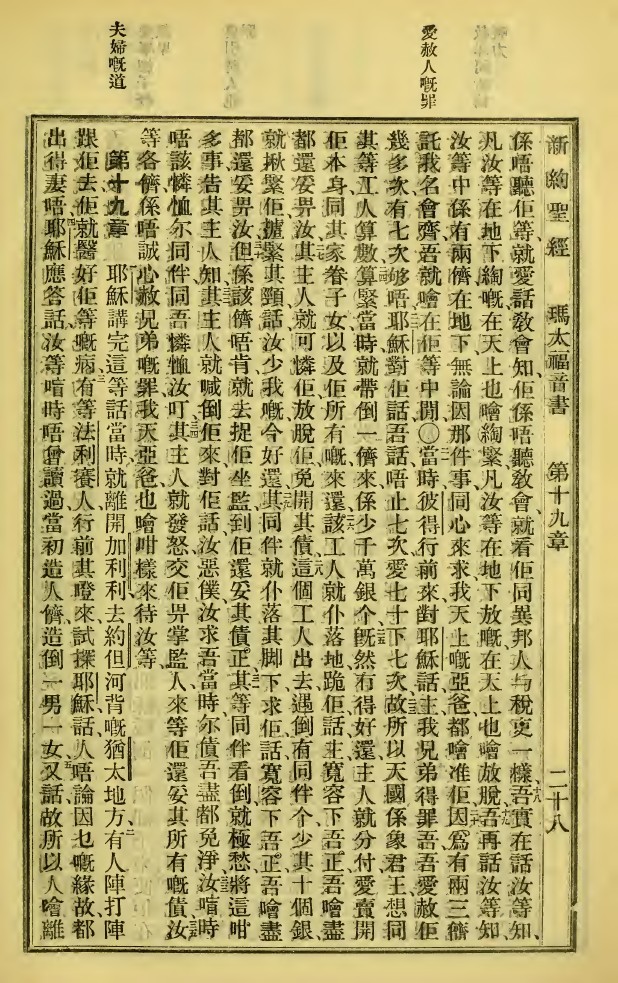 愛赦人嘅罪
夫婦嘅道
新約聖經 瑪太福音書 第十九章 二十八
係唔聽佢等、就愛話敎會知、佢係唔聽敎會、就看佢同異邦人与稅吏一樣、吾實在話汝等知、
凡汝等在地下綯嘅、在天上也噲綯緊、凡汝等在地下放嘅、在天上也噲放脫、吾再話汝等知、
汝等中係有兩儕在地下、無論因那件事、同心來求、我天上嘅亞爸都噲准佢、因爲有兩三儕
託我名會齊、吾就噲在佢等中間〇當時彼得行前來、對耶穌話、主、我兄弟得罪吾、吾愛赦佢
幾多次、有七次够唔、耶穌對佢話、吾話唔止七次、愛七十下七次、故所以天國係象君王、想同
其等工人算數、算緊當時、就帶倒一儕來、係少千萬銀个、旣然冇得好還、主人就分付愛賣開
佢本身、同其家眷子女、以及佢所有嘅來還、該工人就仆落地跪佢話、主、寬容下吾正、吾噲盡
都還妥畀汝、其主人就可憐佢、放脫佢、免開其債、這個工人出去、遇倒有同伴个、少其十個銀、
就揪緊佢、攄緊其頸話、汝少我嘅今好還、其同伴就仆落其脚下求佢話、寬容下吾正、吾噲盡
都還妥畀汝、但係該儕唔肯、就去捉佢坐監、到佢還妥其債正、其等同伴看倒、就極愁、將這咁
多事告其主人知、其主人就喊倒佢來、對佢話、汝惡僕、汝求吾當時、尔債吾盡都免淨汝、喑時
唔該憐恤尔同伴、同吾憐恤汝叮、其主人就發怒、交佢畀掌監人、來等佢還妥其所有嘅債、汝
等各儕係唔誠心赦兄弟嘅罪、我天亞爸也噲咁樣來待汝等、
第十九章 耶穌講完這等話當時、就離開加利利、去約但河背嘅猶太地方、有人陣打陣
跟佢去、佢就醫好佢等嘅病、有等法利賽人行前其蹬來試探耶穌話、人唔論因乜嘅緣故、都
出得妻唔、耶穌應答話、汝等喑時唔曾讀過、當初造人儕、造倒一男一女、又話、故所以人噲離